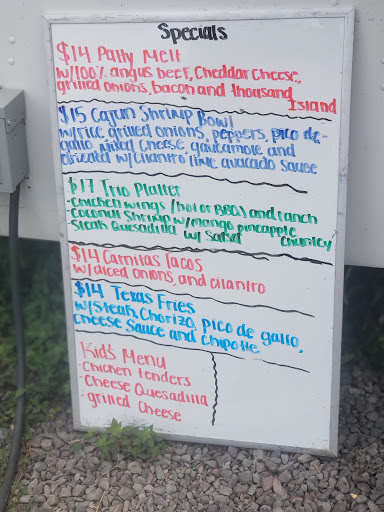 Specials
$14 Patty Melt
w/100% angus beef, Cheddar Cheese,
grilled onions, bacon and thousand
Island
$15 Cajun Shrimp Bowl
w/rice, grilled onions, peppers, pico de-
gallo, mixed cheese, guacamole and
drizzled w/cilantro lime avacado sause
$17 Trio Platter
-Chicken wings (hot or BBQ) and ranch
-Coconut Shrimp w/mango pineapple
Chunley
-Steak Quesadilla w/ Salsa
$14 Carnitas Tacos
w/diced onions, and cilantro
$14 Texas Fries
w/Steak, Chorizo, pico de gallo,
Cheese Sauce and Chipotle
Kid's Menu
-Chicken tenders
-Cheese Quesadilla
-grilled Cheese